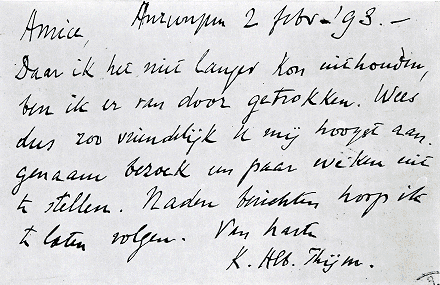 Amice, Antwerpen 2 febr. '93. –
Daar ik het niet langer kon uithouden,
ben ik er van door getrokken. Wees
dus zoo vriendelijk U mij hoogst aan-
genaam bezoek een paar weken uit
te stellen. Nader berichten hoop ik
te laten volgen. Van harte
K. Alb. Thijm.